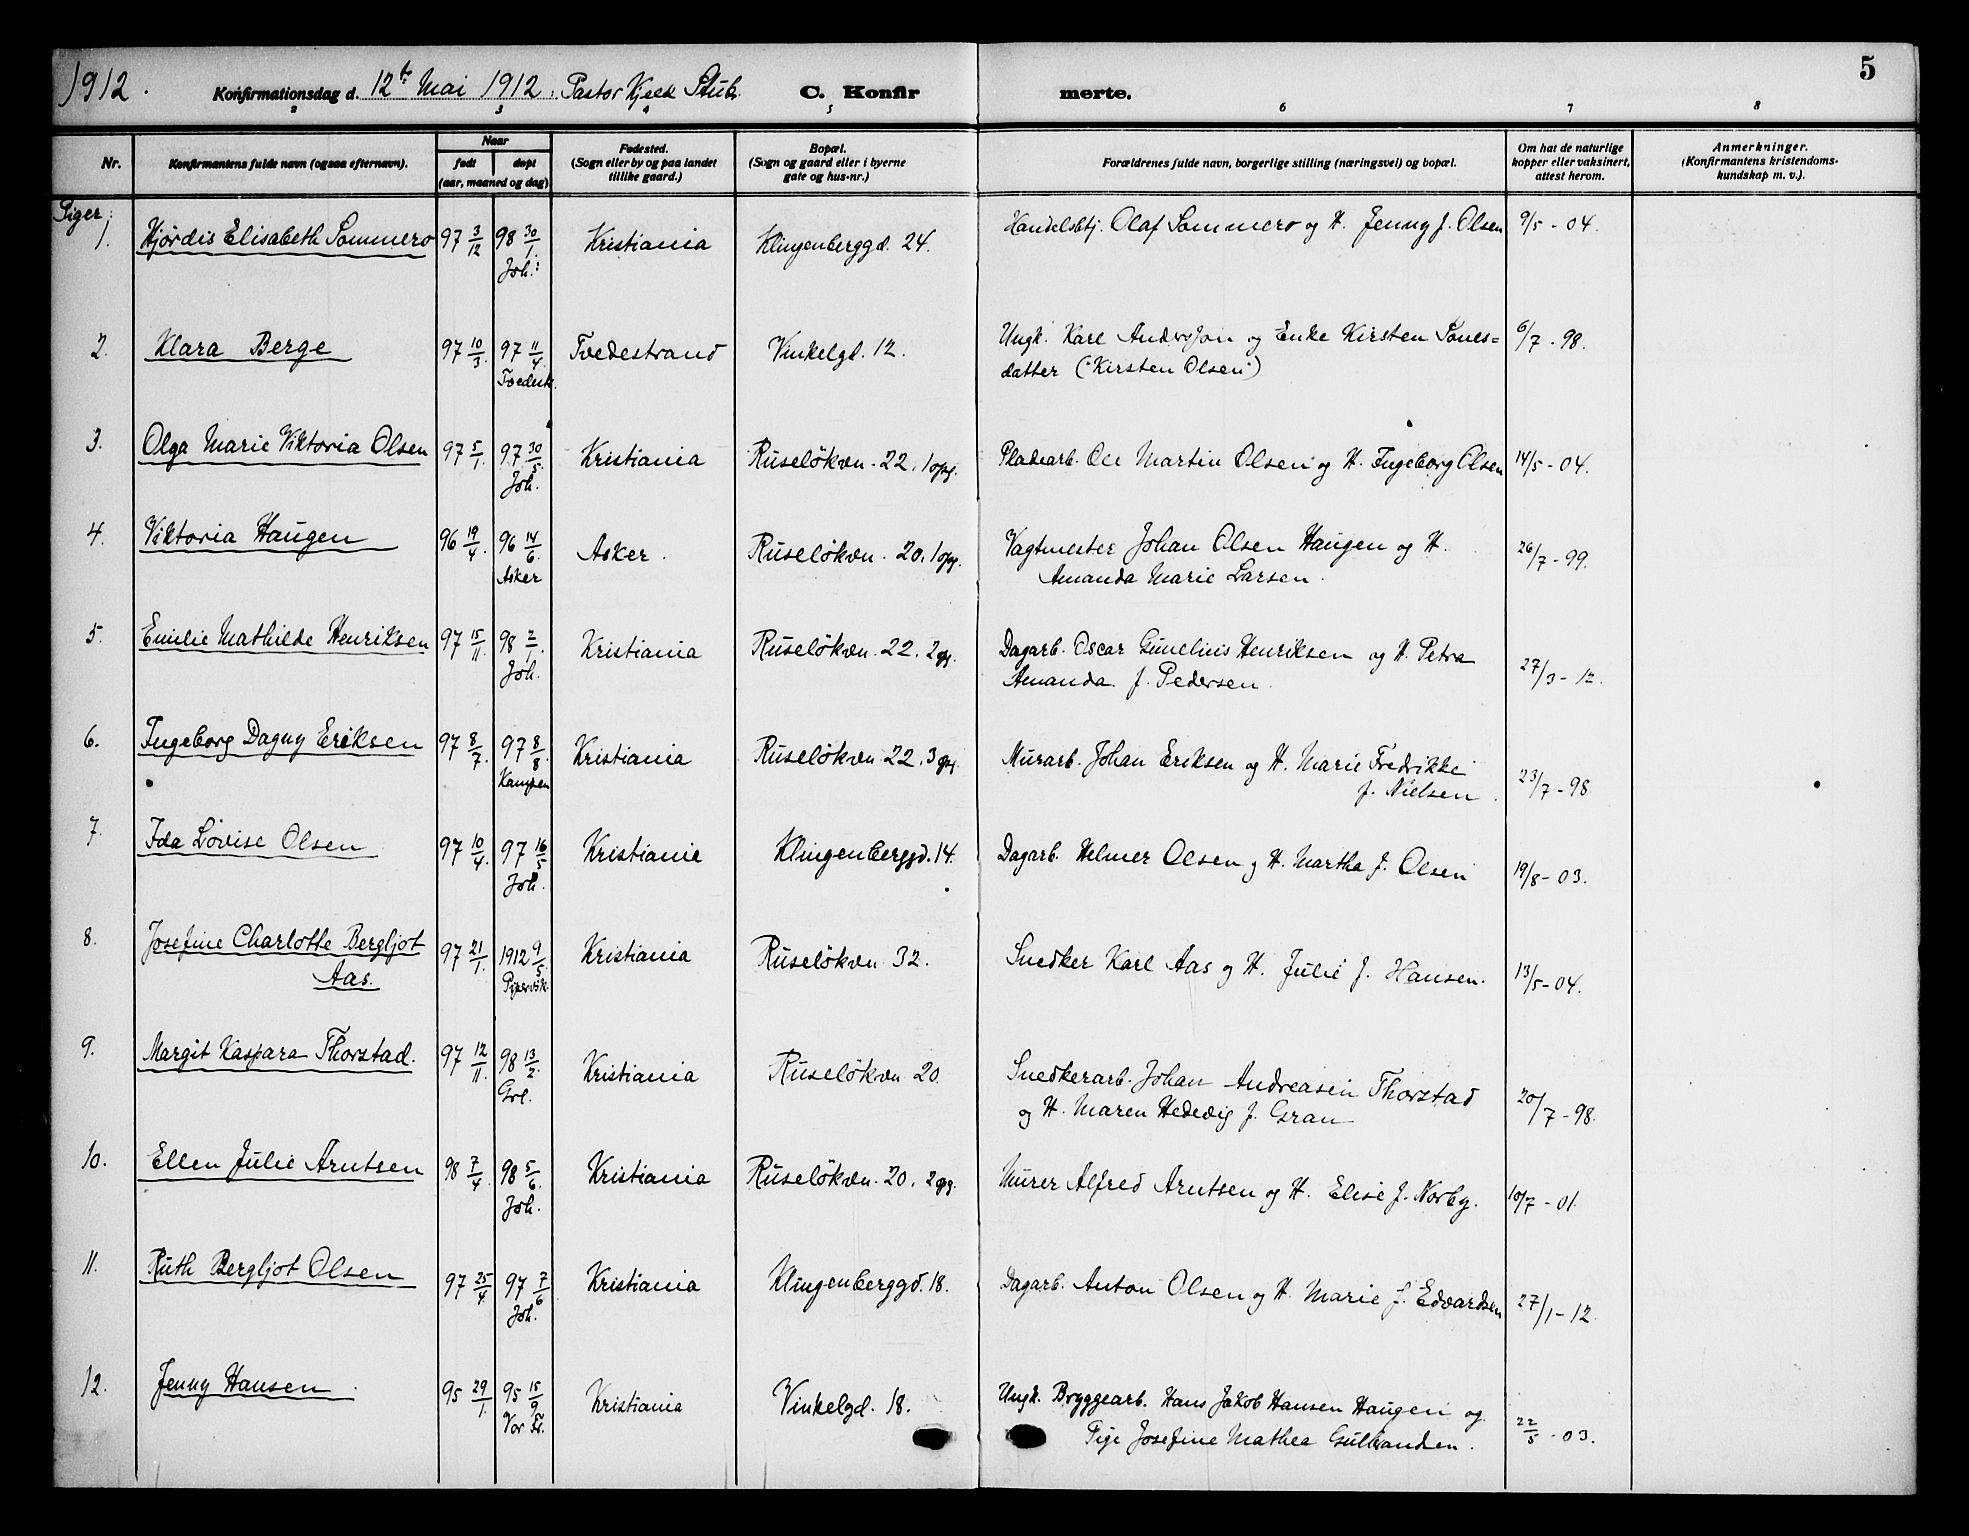 1912. Konfirmationsdag d. 12te Mai 1912. Pastor Kjeld Stub. C. Konfirmerte. 5
2 3 4 5 6 7 8
Nr. Konfirmantens fulde navn (ogsaa efternavn). Naar født døpt (aar, maaned og dag) Fødested. (Sogn eller by og paa landet tillike gaard.) Bopæl. (Sogn og gaard eller i byerne gate og hus-nr.) Forældrenes fulde navn, borgerlige stilling (næringsvei) og bopæl. Om hat de naturlige kopper eller vaksinert, attest herom. Anmerkninger. (Konfirmantens kristendomskundskap m. v.).
Piger:
1. Hjørdis Elisabeth Sommero 97 3/12 98 30/1. Joh: Kristiania Klingenberggd. 24. Handelsbtj. Olaf Sommero og H. Jenny f. Olsen 9/5 - 04.
2. Klara Berge 97 10/3. 97 11/4. Tvedestr. Tvedestrand Vinkelgd. 12. Ungk. Karl Andersson og Enke Kirsten Sones=
datter (Kirsten Olsen) 6/7 - 98.
3. Olga Marie Viktoria Olsen 97 5/1. 97 30/5. Joh. Kristiania Ruseløkvn. 22. 1 opg. Pladearb. Ole Martin Olsen og H. Ingeborg Olsen 14/5 - 04.
4. Viktoria Haugen 96 19/4. 96 14/6. Asker Asker. Ruseløkvn. 20. 1 opg. Vagtmester Johan Olsen Haugen og H.
Amanda Marie Larsen. 26/7 - 99.
5. Emilie Mathilde Henriksen 97 15/11. 98 2/1. Joh. Kristiania Ruseløkvn. 22. 2 opg. Dagarb. Oscar Gunelius Henriksen og H. Petra
Amanda f. Pedersen. 27/3 - 12.
6. Ingeborg Dagny Eriksen 97 8/7. 97 8/8. Kampen Kristiania Ruseløkvn. 22. 3 opg. Murarb. Johan Eriksen og H. Marie Fredrikke
f. Nielsen. 23/7 - 98
7. Ida Lovise Olsen 97 10/4. 97 16/5 Joh. Kristiania Klingenberggd. 14. Dagarb. Helmer Olsen og H. Martha f. Olsen 19/8 - 03.
8. Josefine Charlotte Bergljot
Aas. 97 21/1. 1912 9/5. Pipervik. Kristiania Ruseløkvn 32. Snedker Karl Aas og H. Julie f. Hansen. 13/5 - 04.
9. Margit Kaspara Thorstad. 97 12/11. 98 13/2. Grl. Kristiania Ruseløkvn 20. Snedkerarb. Johan Andreasen Thorstad
og H. Maren Hedevig f. Gran 20/7 - 98.
10. Ellen Julie Arntsen 98 7/4. 98 5/6. Joh. Kristiania Ruseløkvn. 20. 2 opg. Murer Alfred Arntsen og H. Elise f. Norby. 10/7 - 01.
11. Ruth Bergljot Olsen 97 25/4. 97 7/6 Joh. Kristiania Klingenberggd. 18. Dagarb. Anton Olsen og H. Marie f. Edvardsen 27/1 - 12.
12. Jenny Hansen. 95 29/1. 95 15/9. Vor Fr. Kristiania Vinkelgd. 18. Ungk. Bryggearb. Hans Jakob Hansen Haugen og
Pige Josefine Mathea Gulbrandsen. 22/5 - 03.